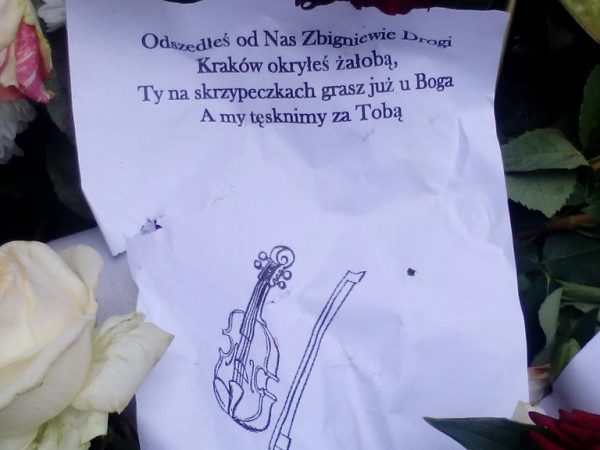 Odszedłeś od Nas Zbigniewie Drogi
Kraków okryłeś żałobą,
Ty na skrzypeczkach grasz już u Boga
A my tęsknimy za Tobą